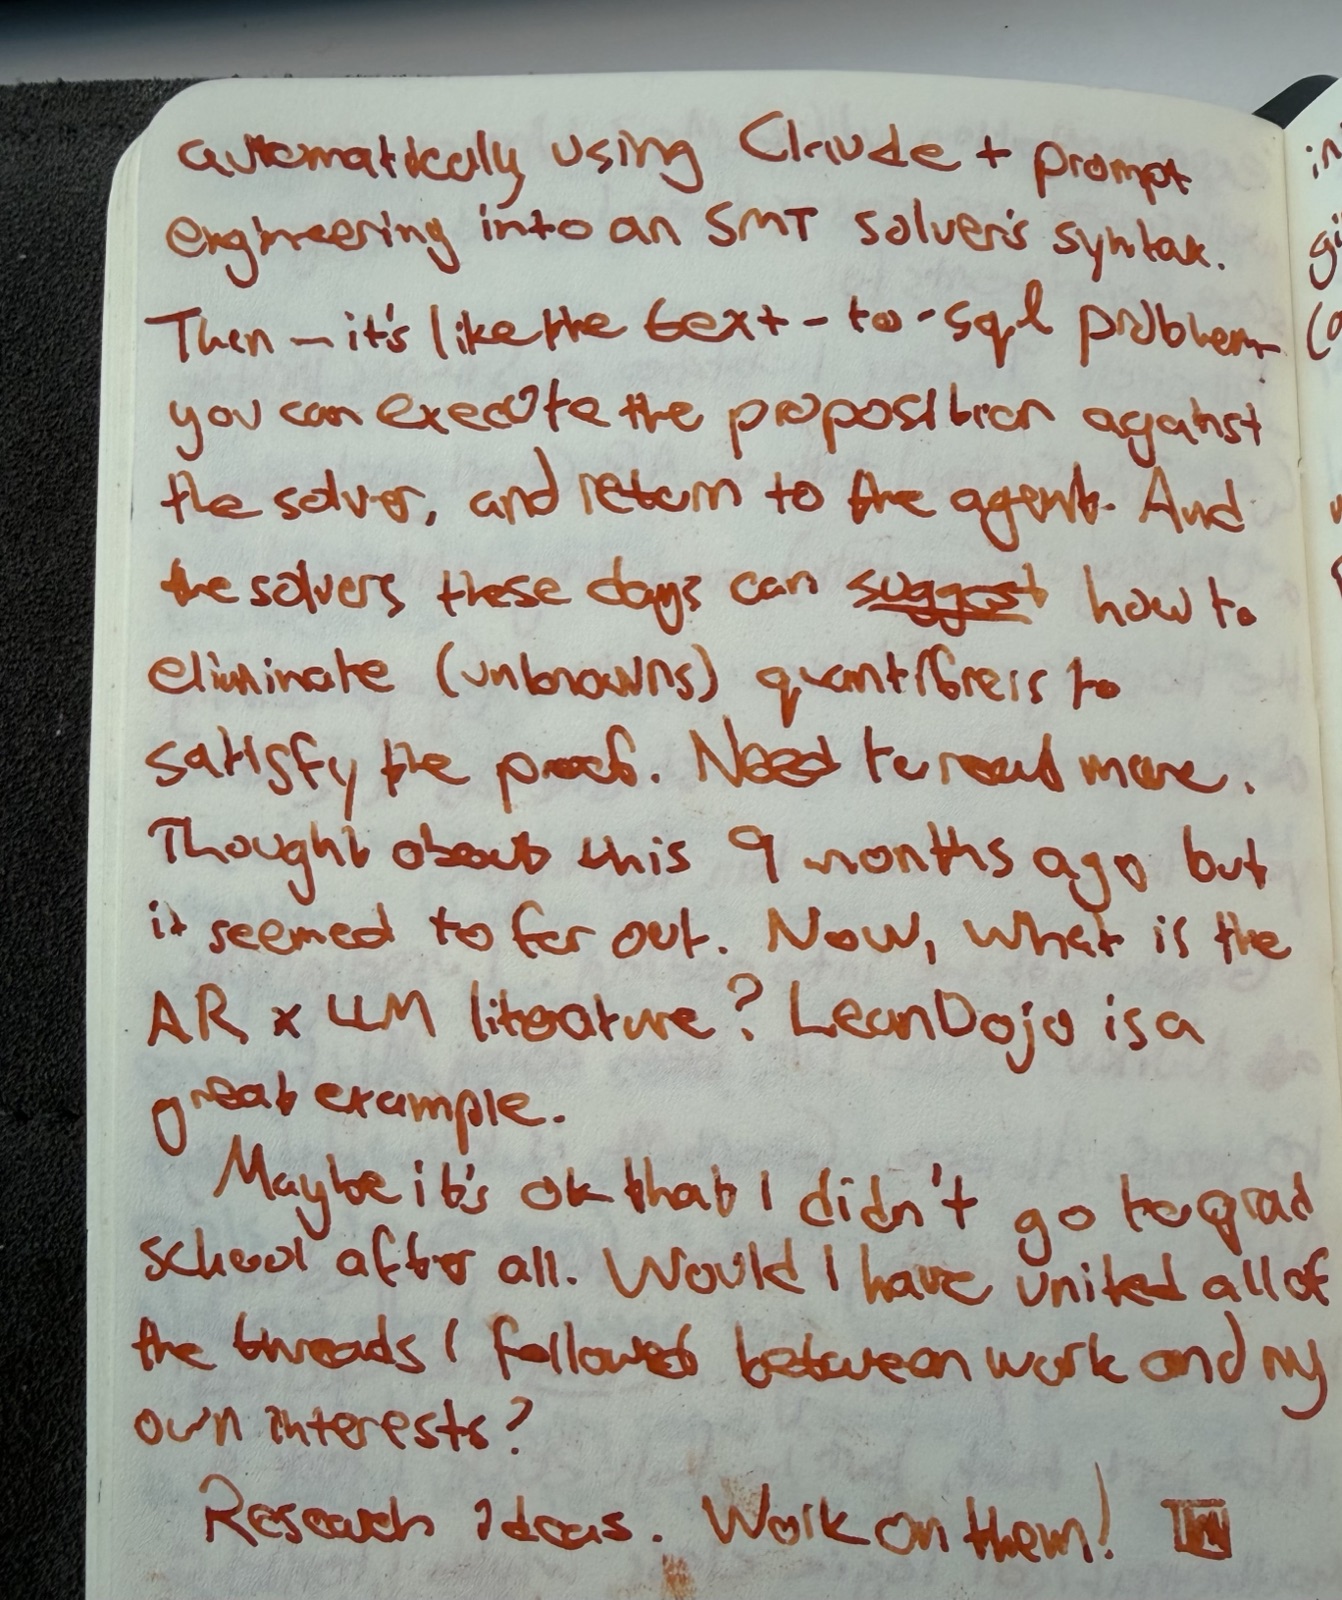 automatically using Claude + prompt
engineering into an SMT solver's syntax.
Then – it's like the text-to-sql problem –
you can execute the proposition against
the solver, and return to the agent. And
the solvers these days can suggest how to
eliminate (unknowns) quantifiers to
satisfy the proof. Need to read more.
Thought about this 9 months ago but
it seemed to far out. Now, what is the
AR x LLM literature? LeanDojo is a
great example.
Maybe it's ok that I didn't go to grad
school after all. Would I have united all of
the threads I followed between work and my
own interests?
Research Ideas. Work on them!